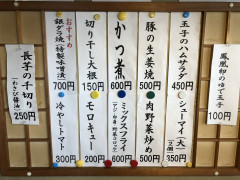 鳳凰卵のゆで玉子
100円
玉子のハムサラダ
450円
シューマイ(大)
(2個)
350円
豚の生姜焼
500円
肉野菜炒め
500円
かつ煮
600円
ミックスフライ
(アジ・白身・野菜コロッケ)
600円
切り干し大根
150円
モロキュー
200円
おすすめ
銀ダラ焼(特製味噌漬)
700円
冷やしトマト
300円
長芋の千切り
(わさび醤油)
250円